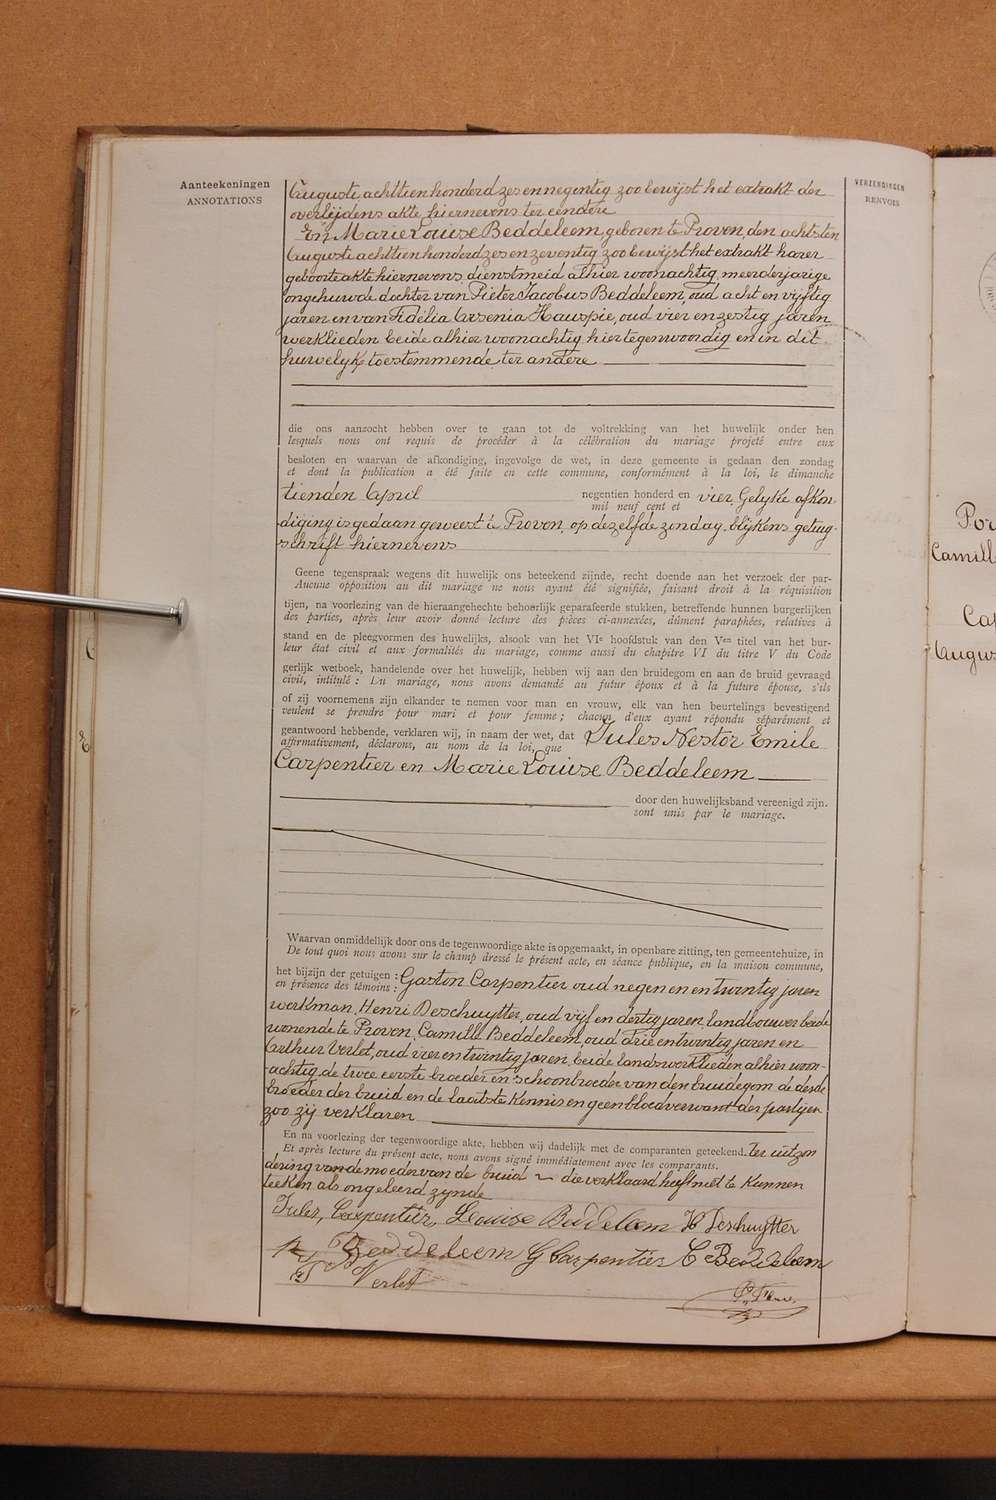 Aanteekeningen
ANNOTATIONS
VERZENDINGEN
RENVOIS
Augusti achttien honderd zes en negentig zoo bewijst het extrakt der
overlijdens akte hiernevens ter eendere
En Marie Louise Beddeleem, geboren te Proven, den achtsten
Augusti achttien honderd zes en zeventig zoo bewijst het extrakt harer
geboorteakte hiernevens, dienstmeid alhier woonachtig, meerderjarige
ongehuwde dochter van Pieter Jacobus Beddeleem, oud acht en vijftig
jaren en van Fidelia Arsenia Hauspie, oud vier en zestig jaren
werklieden beide alhier woonachtig hiertegenwoordig en in dit
huwelyk toestemmende, ter andere
die ons aanzocht hebben over te gaan tot de voltrekking van het huwelijk onder hen
lesquels nous ont requis de procéder à la célébration du mariage projeté entre eux
besloten en waarvan de afkondiging, ingevolge de wet, in deze gemeente is gedaan den zondag
et dont la publication a été faite en cette commune, conformément à la loi, le dimanche
tienden April negentien honderd en vier Gelyke afkon-
mil neuf cent et
diging is gedaan geweest te Proven op dezelfde zondag, blijkens getuig-
schrift hiernevens
Geene tegenspraak wegens dit huwelijk ons beteekend zijnde, recht doende aan het verzoek der par-
Aucune opposition au dit mariage ne nous ayant été signifiée, faisant droit à la réquisition
tijen, na voorlezing van de hieraangehechte behoorlijk geparafeerde stukken, betreffende hunnen burgerlijken
des parties, après leur avoir donné lecture des pièces ci-annexées, dûment paraphées, relatives à
stand en de pleegvormen des huwelijks, alsook van het VIe hoofdstuk van den Ven titel van het bur-
leur état civil et aux formalités du mariage, comme aussi du chapitre VI du titre V du Code
gerlijk wetboek, handelende over het huwelijk, hebben wij aan den bruidegom en aan de bruid gevraagd
civil, intitulé : Du mariage, nous avons demandé au futur époux et à la future épouse, s'ils
of zij voornemens zijn elkander te nemen voor man en vrouw, elk van hen beurtelings bevestigend
veulent se prendre pour mari et pour femme ; chacun d'eux ayant répondu séparément et
geantwoord hebbende, verklaren wij, in naam der wet, dat Jules Nestor Emile
affirmativement, déclarons, au nom de la loi, que
Carpentier en Marie Louise Beddeleem
door den huwelijksband vereenigd zijn.
sont unis par le mariage.
Waarvan onmiddelijk door ons de tegenwoordige akte is opgemaakt, in openbare zitting, ten gemeentehuize, in
De tout quoi nous avons sur le champ dressé le présent acte, en séance publique, en la maison commune,
het bijzijn der getuigen : Gaston Carpentier oud negen en en twintig jaren
en présence des témoins :
werkman, Henri Deschuytter, oud vijf en dertig jaren, landbouwer beide
wonende te Proven, Camille Beddeleem, oud drie en twintig jaren en
Arthur Verlet, oud vier en twintig jaren, beide landswerklieden alhier woon-
achtig, de twee eerste broeder en schoonbroeder van den bruidegom de derde
broeder der bruid en de laatste kennis en geen bloedverwant der partijen
zoo zij verklaren
En na voorlezing der tegenwoordige akte, hebben wij dadelijk met de comparanten geteekend. Ter uitzon
Et après lecture du présent acte, nous avons signé immédiatement avec les comparants.
dering van de moeder van de bruid die verklaard heeft niet te kunnen
teeken als ongeleerd zynde
Jules, Carpentier, Louise Beddeleem H Deschuytter
Beddeleem G Carpentier C Beddeleem
Verlet
Por
Camill
Ca
Augus